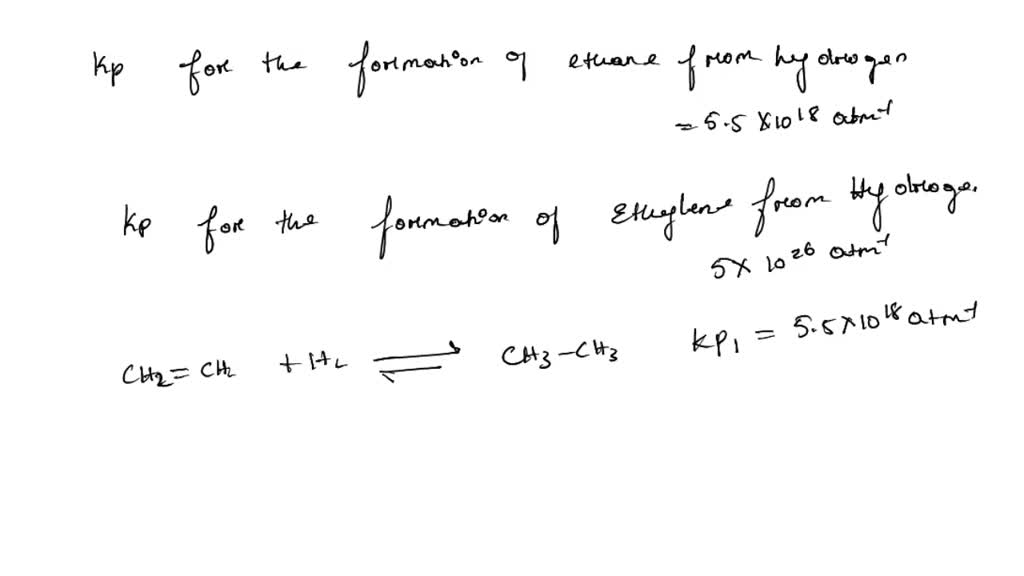 Kp for the formation of ethane from hydrogen
= 5.5 × 10^18 atm^-1
Kp for the formation of Ethylene from Hydroge.
5 × 10^26 atm^-1
CH2 = CH2 + H2 ⇌ CH3 – CH3 Kp1 = 5.5 × 10^18 atm^-1